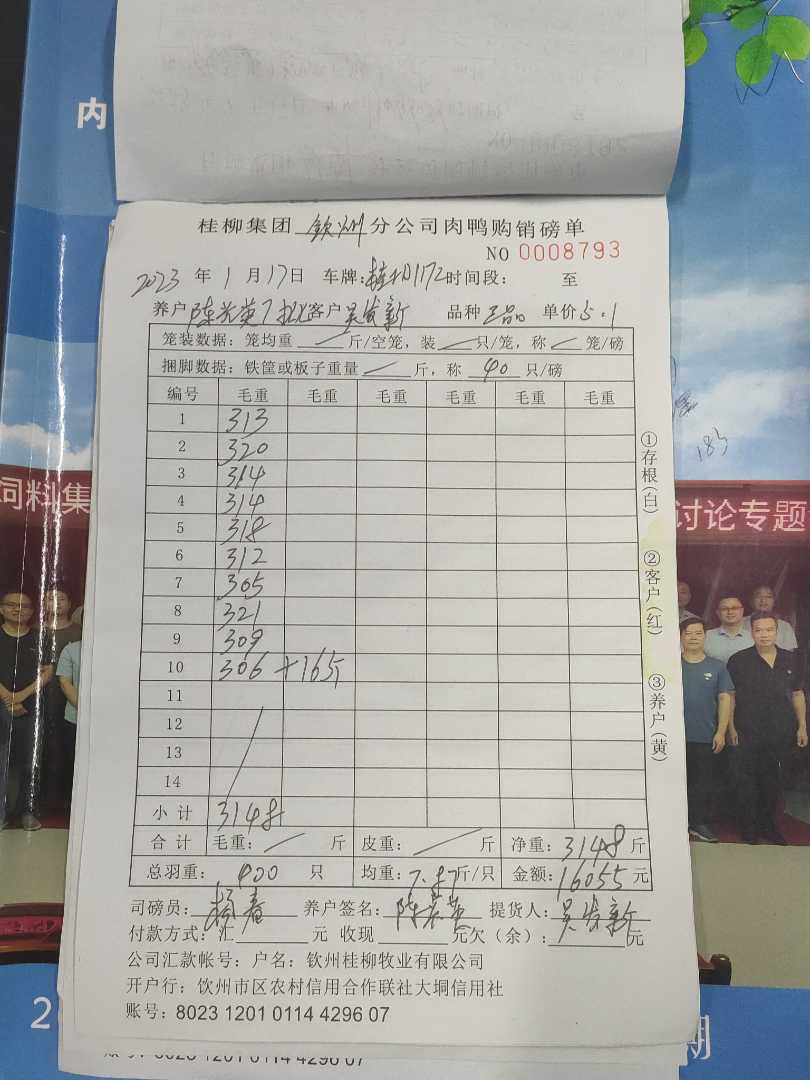 内
桂柳集团 钦州 分公司肉鸭购销磅单
NO 0008793
2023 年 1 月 17 日 车牌:桂柳1172 时间段: 至
养户 客户 吴发新 品种 正品 单价 5.1
笼装数据: 笼均重 / 斤/空笼, 装 / 只/笼, 称 / 笼/磅
捆脚数据: 铁筐或板子重量 / 斤, 称 40 只/磅
编号 毛重 毛重 毛重 毛重 毛重 毛重
1 313
2 320
3 314
4 314
5 318
6 312
7 305
8 321
9 309
10 306 +16斤
11
12
13
14
小计 3148斤
合计 毛重: / 斤 皮重: / 斤 净重: 3148 斤
总羽重: 400 只 均重: 7.87斤/只 金额: 16055 元
司磅员: 杨春 养户签名: 提货人: 吴发新
付款方式: 汇 元 收现 元欠(余): 元
公司汇款帐号: 户名: 钦州桂柳牧业有限公司
开户行: 饮州市区农村信用合作联社大垌信用社
账号: 8023 1201 0114 4296 07
①存根(白)
②客户(红)
③养户(黄)
185
饲料集
讨论专题
2
期
账号: 8023 1201 0114 4296 07